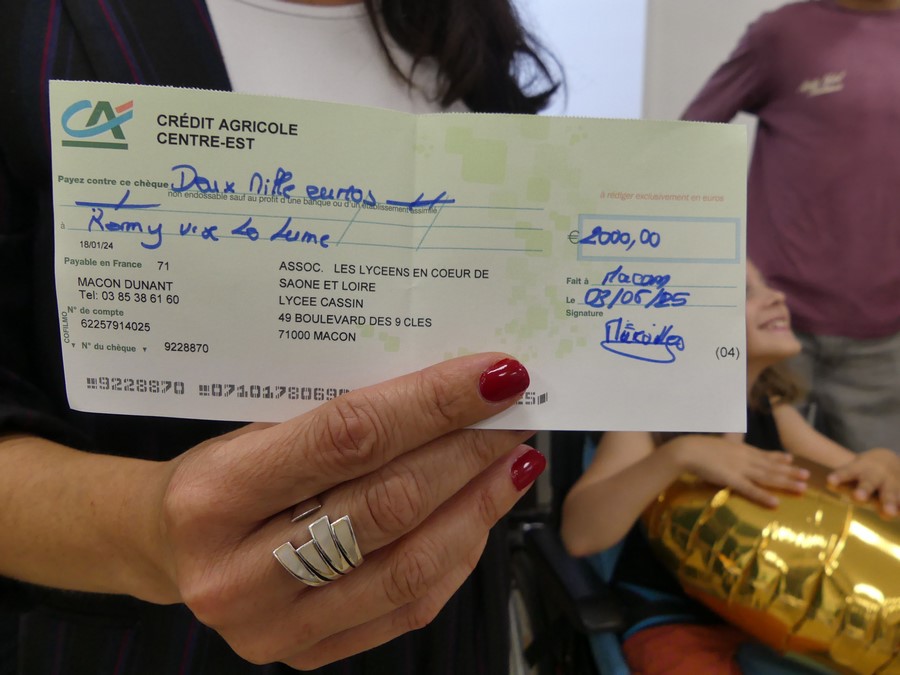 CA
CRÉDIT AGRICOLE
CENTRE-EST
Payez contre ce chèque Deux Mille euros
non endossable sauf au profit d'une banque ou d'un établissement assimilé
à rédiger exclusivement en euros
à Remy vix Lo Lume
€ 2000,00
18/01/24
Payable en France 71
MACON DUNANT
Tel: 03 85 38 61 60
N° de compte
62257914025
N° du chèque 9228870
COFILMO
ASSOC. LES LYCEENS EN COEUR DE
SAONE ET LOIRE
LYCEE CASSIN
49 BOULEVARD DES 9 CLES
71000 MACON
Fait à Macon
Le 03/06/25
Signature
(04)
9228870 0710178069